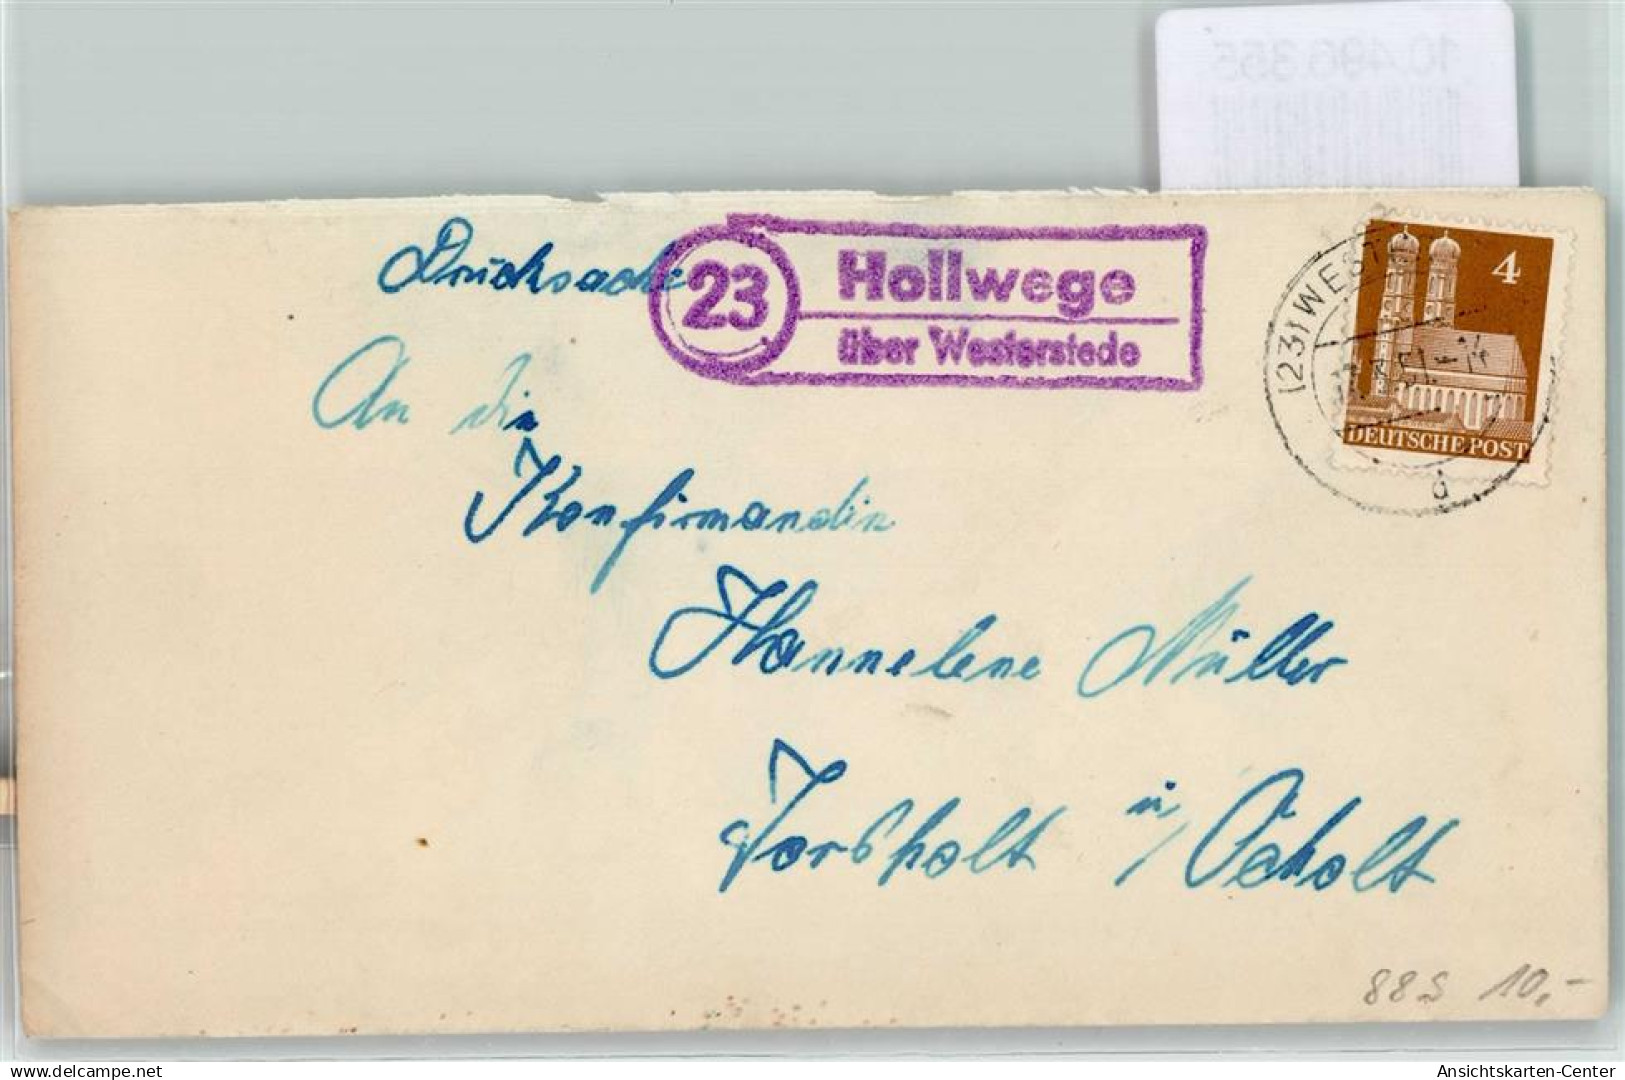 10.496.355
Drucksache
23
Hollwege
über Westerstede
(23) WEST
4
DEUTSCHE POST
d
An die
Konfirmandin
Hannelene Müller
Torsholt ü/ Ocholt
88S 10,-
delcampe.net
Ansichtskarten-Center